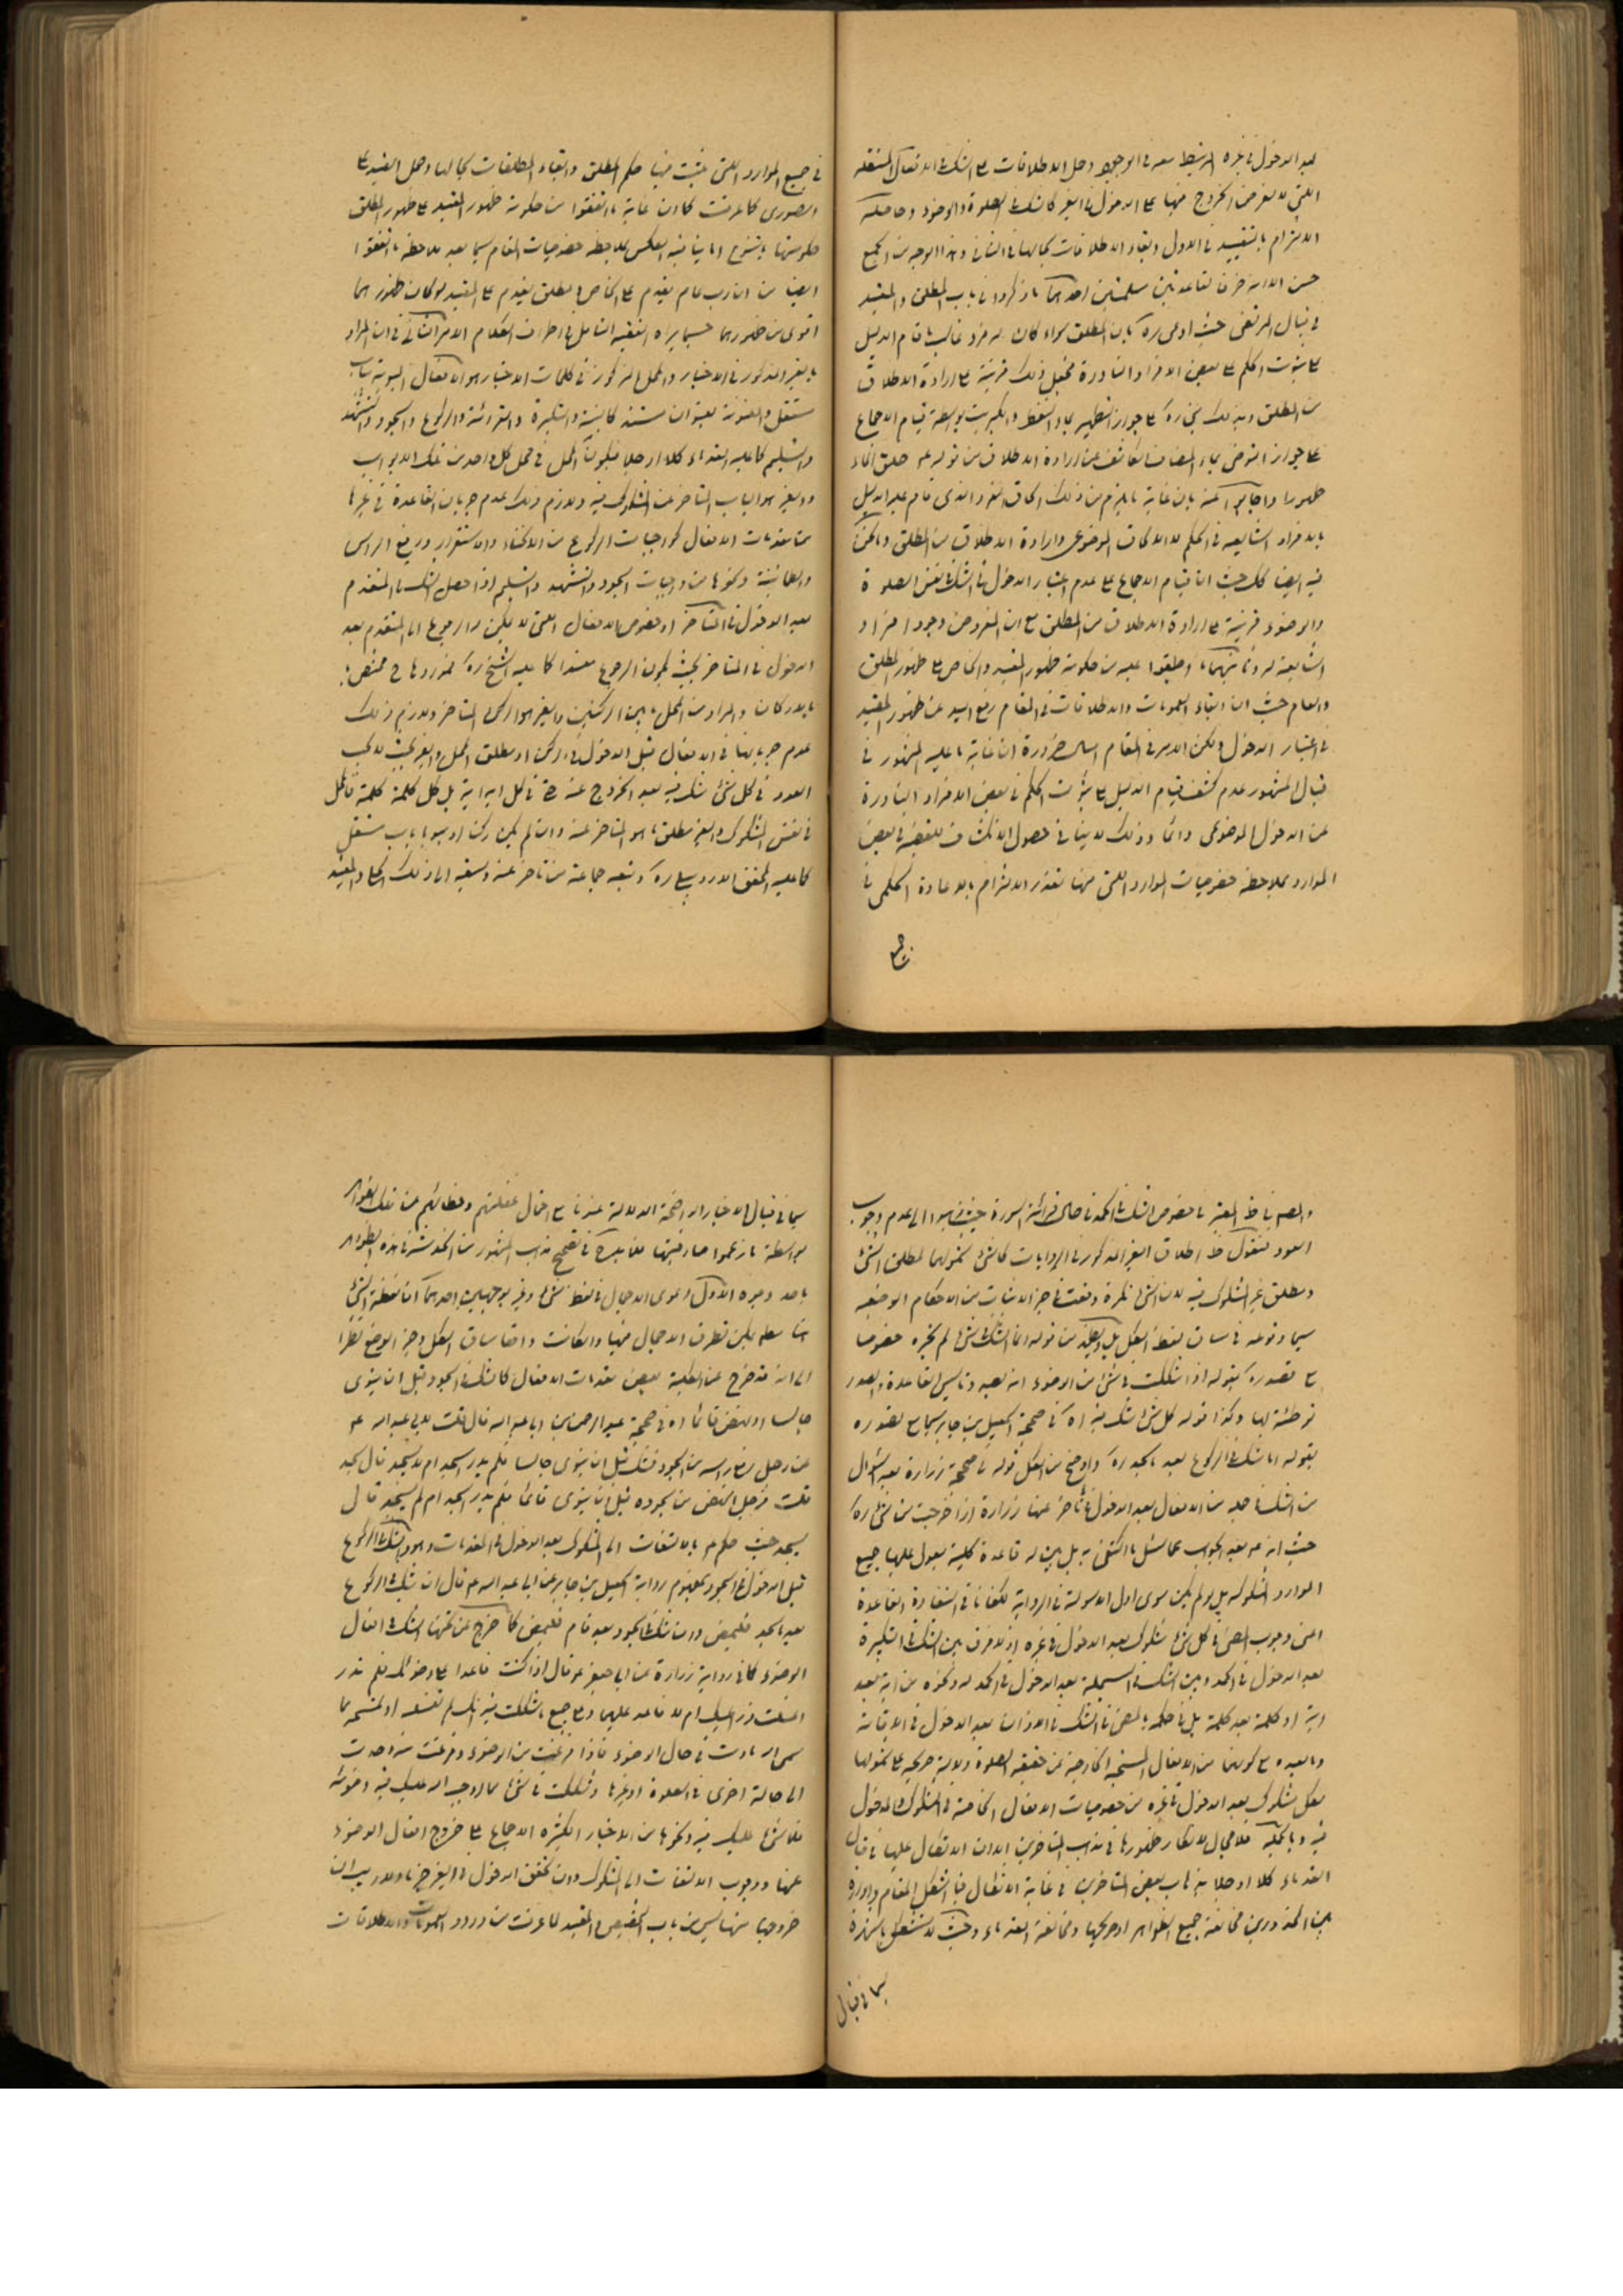 بعد الدخول في غيره المرتبط معه في الوجود وحمل الاطلاقات على الشك في الافعال المستقلة
اللتي لا تعرض الخروج منها على الدخول في الغير كالشك في الصلوة والوضوء وحاصله
الالتزام بالتقييد في الاول وبقاء الاطلاقات بحالها في الثاني وهذا الوجه من الجمع
حسن الا انه خرق لقاعدتين مسلمتين احدهما ما ذكروا في باب المطلق والمقيد
في قبال المرتضى حيث اورد ره بان المطلق سواء كان له فرد غالب ما قام الدليل
على ثبوت الحكم على بعض الافراد النادرة فيجعل ذلك قرينة على ارادة الاطلاق
من المطلق وبذلك ره على جواز التطهير بماء النفط والكبريت بواسطة قيام الاجماع
على جواز التوضي بماء المضاف الكاشف عن ارادة الاطلاق من قوله عم خلق الماء
طهورا واجابوا عنه بان غاية ما يلزم من ذلك الحاق الفرد الذي قام عليه الدليل
بالافراد الشايعه في الحكم لا الالحاق الموضوعي وارادة الاطلاق من المطلق وما نحن
فيه ايضا كك حيث ان قيام الاجماع على عدم اعتبار الدخول في الشك في نفس الصلوة
والوضوء قرينة على ارادة الاطلاق من المطلق مع ان المفروض وجود افراد
الشايعة له وثانيهما ما اطبقوا عليه من حكومة ظهور المقيد والخاص على ظهور المطلق
والعام حيث ان ابقاء العمومات والاطلاقات في المقام رفع اليد عن ظهور المقيد
في اعتبار الدخول ولكن الامر في المقام اسهل ضرورة ان غاية ما عليه المشهور في
قبال المشهور عدم كشف قيام الدليل على ثبوت الحكم في بعض الافراد النادرة
عن الدخول الموضوعي دائما وذلك لا ينافي حصول الانكشاف للفقيه في بعض
الموارد بملاحظة خصوصيات الموارد اللتي منها تعذر الالتزام بالاعادة الحكمي في
في جميع الموارد اللتي يثبت فيها حكم المطلق وابقاء المطلقات بحالها وحمل القيد على
الصوري كما عرفت كما ان غاية ما اتفقوا من حكومة ظهور المقيد على ظهور المطلق
حكومتها بالنوع لا ينافيه العكس بملاحظة خصوصيات المقام سيما بعد ملاحظة ما اتفقوا
ايضا من ان رب عام يقدم على الخاص ومطلق يقدم على المقيد لو كان ظهورهما
اقوى من ظهورهما حسبما يراه الفقيه المتامل في اطراف الكلام الامر الثاني في ان المراد
بالغير المذكور في الاخبار والمحل المذكور في كلمات الاخيار هو الافعال المبوبة بباب
مستقل والمعنونة بعنوان مستند كالنية والتكبيرة والقرائة والركوع والسجود والتشهد
والتسليم كما عليه القدماء كلا او جلا فيكون المحل في محل كل واحد من تلك الابواب
والغير هو الباب المتاخر عن المشكوك فيه ولازم ذلك عدم جريان القاعدة في غيرها
من مقدمات الافعال كواجبات الركوع من الانحناء والاستقرار ورفع الراس
والطمانينة وكذا ما من واجبات السجود والتشهد والتسليم اذا حصل الشك في المتقدم
بعد الدخول في المتاخر او خصوص الافعال اللتي لا يمكن الرجوع الى المتقدم بعد
الدخول في المتاخر بحيث يكون الرجوع مفسدا كما عليه الشيخ ره فموردها ح مختص
بالاركان والمراد من المحل ما بين الركنين والغير هو الركن المتاخر ولازم ذلك
عدم جريانها في الافعال قبل الدخول في الركن او مطلق المحل والغير بحيث لا يجب
العود في كل شيء شك فيه بعد الخروج عنه حتى في كل اية اية بل كل كلمة كلمة فالمحل
في نفس المشكوك والغير مطلق ما هو المتاخر عنه وان لم يكن ركنا او مبوبا بباب مستقل
كما عليه المحقق الاردبيلي ره وتبعه جماعة من تاخر عنه وسبقه الى ذلك الحماد المقيد
والصم فاظ المعتبر في خصوص الشك في الحمد في حال قرائة السورة حيث ذهبوا الى عدم وجوب
العود فنقول ظ اطلاق الغير المذكور في الروايات كالشيء شمولهما لمطلق الشيء
ومطلق غير المشكوك فيه لان الشيء نكرة وقعت في حيز الاثبات من الاحكام الوضعيه
سيما وقوعه في سياق لفظ الكل من قوله انما الشك في شيء لم تجزه خصوصا
مع تصدره بقوله اذا شككت في شيء من الوضوء انه بصدد تاسيس القاعدة والصدر
توطئة لها وكذا قوله كل شيء شك فيه اه في صحيحة اسمعيل بن جابر سيما مع تصوره
بقوله ان شك في الركوع بعد ما سجد ره واوضح من الكل قوله في صحيحة زرارة بعد السؤال
من الشك في جملة من الافعال بعد الدخول في ما تاخر عنها زرارة اذا خرجت من شيء ره
حيث انه عم بعد الجواب عما سئل ما اكتفى به بل بين له قاعدة كلية يعول عليها جميع
الموارد المشكوكة بل ولم يكن سوى اول الاسولة في الرواية لكفانا في استفادة القاعدة
اعني وجوب المضي في كل شيء مشكوك بعد الدخول في غيره اذ لا فرق بين الشك في التكبيرة
بعد الدخول في الحمد وبين الشك في البسملة بعد الدخول في الحمد له ونحوه من اية بعد
اية او كلمة بعد كلمة بل في حكمه بالمضي في الشك في الاذان بعد الدخول في الاقامة
وما بعده مع كونهما من الافعال المستحبة الخارجة عن حقيقة الصلوة دلالة صريحة على شمولها
لكل مشكوك بعد الدخول في غيره من خصوصيات الافعال الخاصة في المشكوك والمدخول
فيه وبالجملة فلا مجال لانكار ظهورها في مذهب المتاخرين الا ان الاتكال عليها في قبال
القدماء كلا او جلا بل باب بعض المتاخرين في غاية الاشكال فيا اشكل المقام ودوره
بين المحذورين مخالفة جميع الظواهر او صريحها ومخالفة القدماء وحيث لا نستقل بالشهرة
سيما في قبال
سيما في قبال الاخبار الواضحة الدلالة عندنا مع احتمال غفلتهم وخطائهم عن تلك الظواهر
بواسطة ما زعموا صارفيتها فلا بد ح في تصحيح مذهب المشهور من الخدشة في هذه الظواهر
باحد وجوه الاول دعوى الاجمال في لفظ شيء وغير بوجهين احدهما ان لفظة الشيء
مما يمكن تطرق الاجمال فيها وان كانت واقعا سياق الكل وحيز الوضع نظرا
الى انه قد خرج عن الكلية بعض مقدمات الافعال كالشك في السجود قبل ان يستوي
جالسا او ينهض قائما اه في صحيحة عبد الرحمن بن ابا عبد الله قال قلت لابي عبد الله عم
عن رجل رفع راسه من السجود فشك قبل ان يستوي جالسا فلم يدر اسجد ام لم يسجد قال يسجد
قلت فرجل نهض من سجوده قبل ان يستوي قائما فلم يدر اسجد ام لم يسجد قال
يسجد حيث حكم م بالالتفات الى المشكوك بعد الدخول في المقدمات وهو الشك في الركوع
قبل الدخول في السجود بمفهوم رواية اسمعيل بن جابر عن ابي عبد الله عم قال ان شك في الركوع
بعد ما سجد فليمض وان شك في السجود بعد ما قام فليمض كما خرج عن تحتها الشك في افعال
الوضوء كما في رواية زرارة عن ابي جعفر عم قال اذا كنت قاعدا على وضوئك فلم تدر
اغسلت ذراعيك ام لا فاعد عليهما وعلى جميع ما شككت فيه انك لم تغسله او تمسحه مما
سمى الله ما دمت في حال الوضوء فاذا فرغت من الوضوء وقد صرت
الى حالة اخرى في الصلوة او غيرها وشككت في شيء مما اوجب الله عليك فيه وضوئه
فلا شيء عليك فيه ونحوها من الاخبار الكثيرة الاجماع على خروج افعال الوضوء
عنها ووجوب الالتفات الى المشكوك وان تحقق الدخول في الغير ولا ريب ان
خروجها منها ليس من باب التخصيص والتقييد لما عرفت من ورود العمومات والاطلاقات